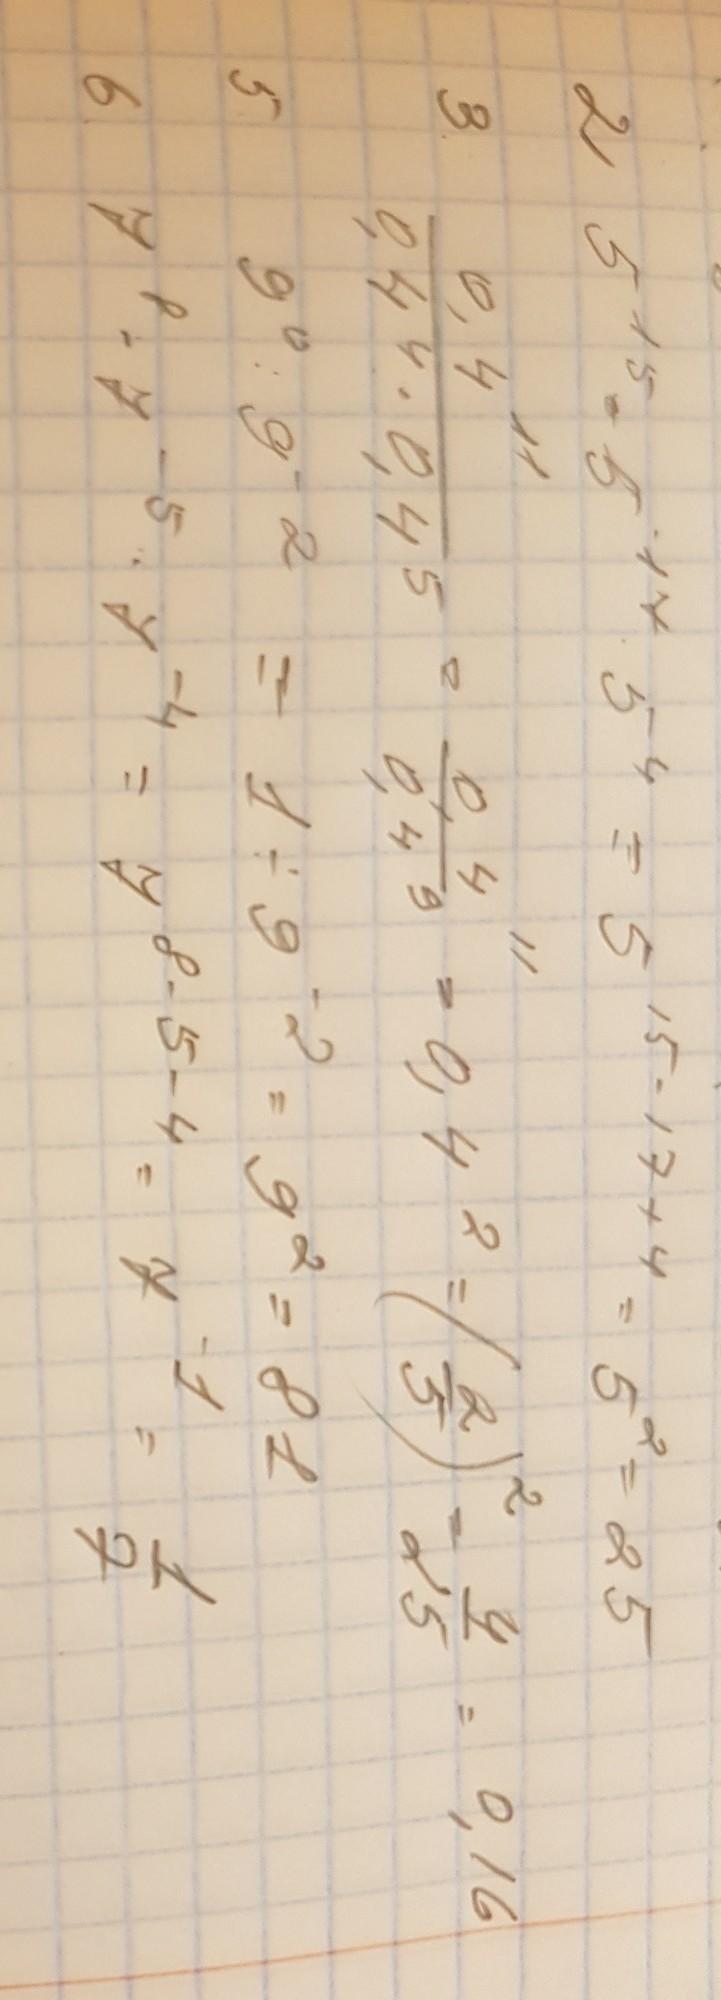 2 5¹⁵ · 5⁻¹⁷ · 5⁴ = 5¹⁵⁻¹⁷⁺⁴ = 5² = 25
3 0,4¹¹ / 0,4⁴ · 0,4⁵ = 0,4¹¹ / 0,4⁹ = 0,4² = (2/5)² = 4/25 = 0,16
5 9⁰ : 9⁻² = 1 ÷ 9⁻² = 9² = 81
6 7⁸ · 7⁻⁵ · 7⁻⁴ = 7⁸⁻⁵⁻⁴ = 7⁻¹ = 1/7